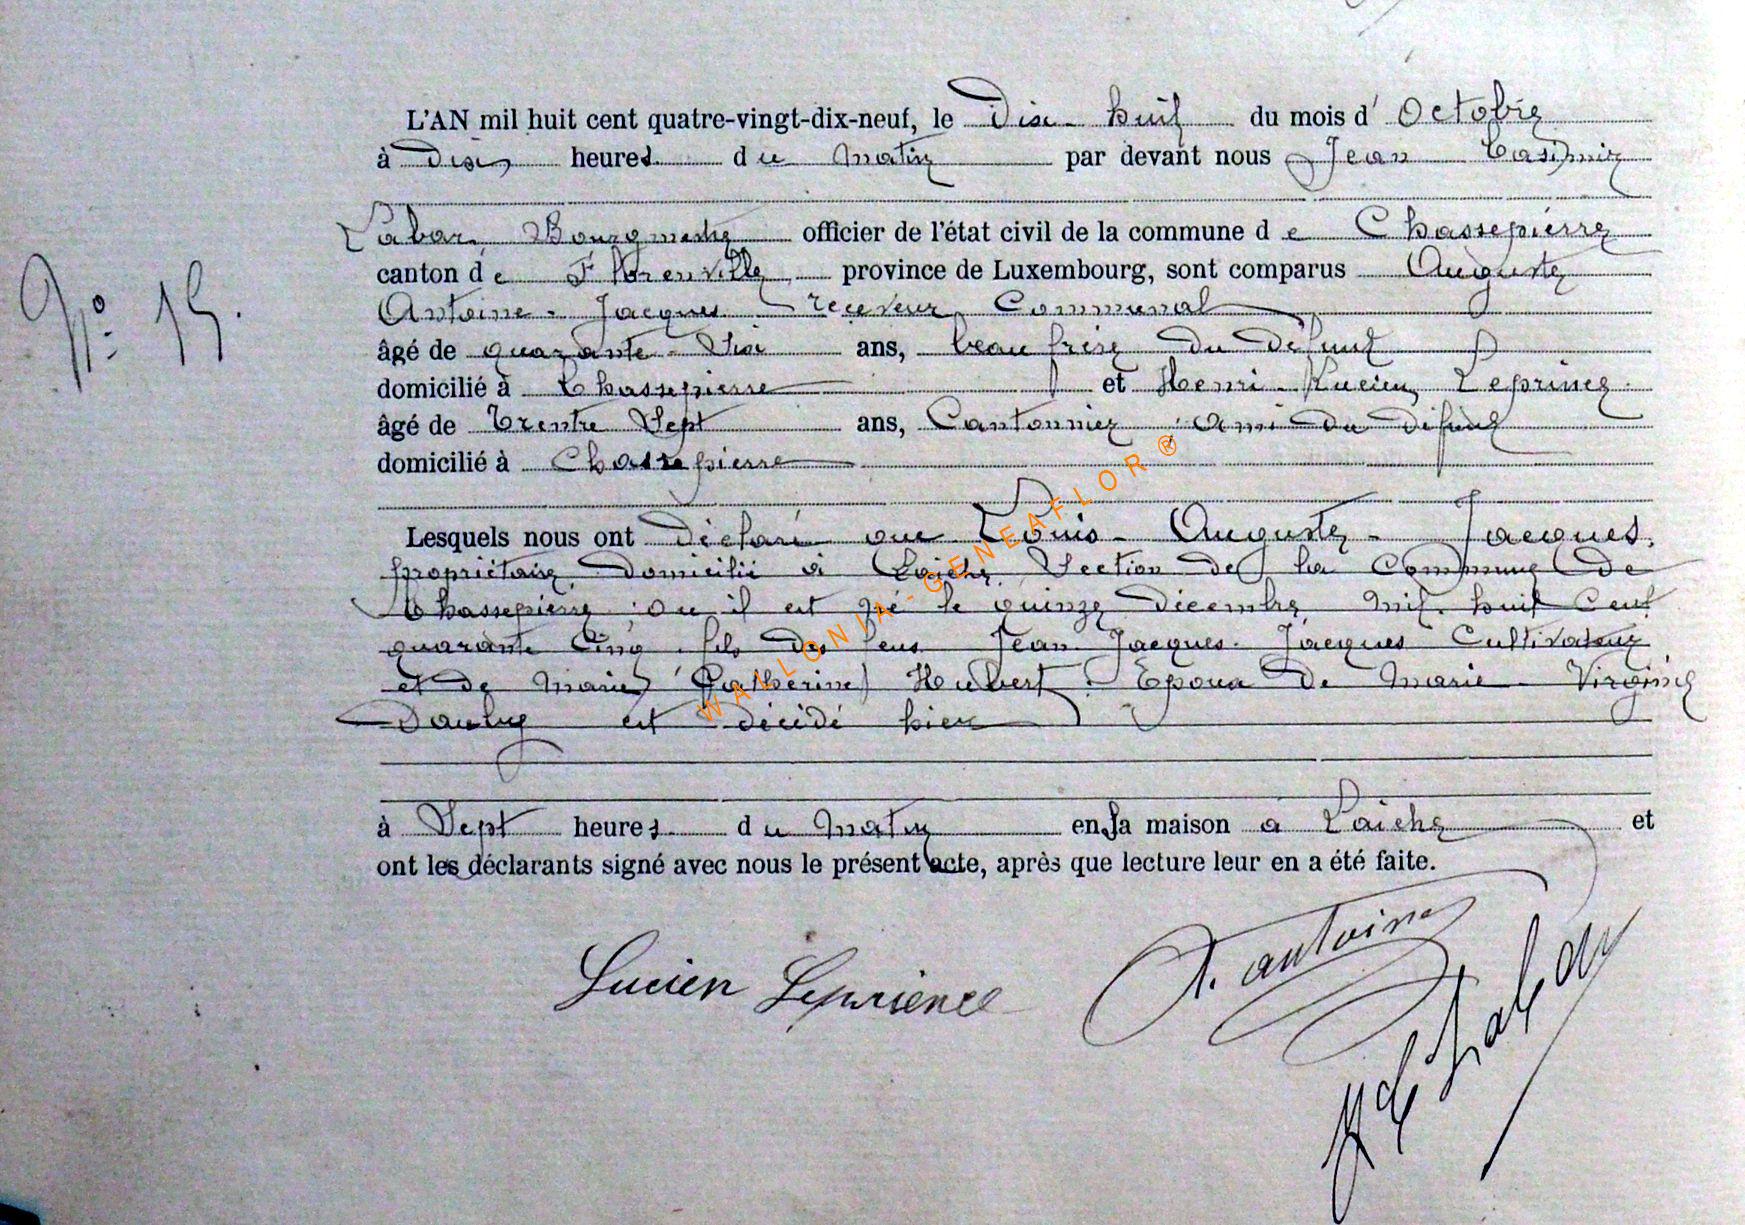 L'AN mil huit cent quatre-vingt-dix-neuf, le Dix-huit du mois d' Octobre
à Dix heures du Matin par devant nous Jean Casimir
Labar, Bourgmestre officier de l'état civil de la commune de Chassepierre
canton de Florenville province de Luxembourg, sont comparus Auguste
Antoine-Jacques receveur Communal
N° 15.
âgé de quarante-Six ans, beau frère du défunt
domicilié à Chassepierre et Henri-Lucien Leprince
âgé de Trente Sept ans, Cantonnier, ami du défunt
domicilié à Chassepierre
Lesquels nous ont déclaré que Louis-Auguste-Jacques,
propriétaire domicilié à Laiche, Section de la Commune de
Chassepierre, où il est né le quinze décembre mil huit cent
quarante cinq, fils des feus Jean-Jacques Jacques Cultivateur
et de Marie Catherine Hubert. Epoux de Marie-Virginie
est décédé hier
à Sept heures du Matin en sa maison à Laiche et
ont les déclarants signé avec nous le présent acte, après que lecture leur en a été faite.
Lucien Leprience A. antoine
Labar
WALLONIA-GENEAFLOR ®